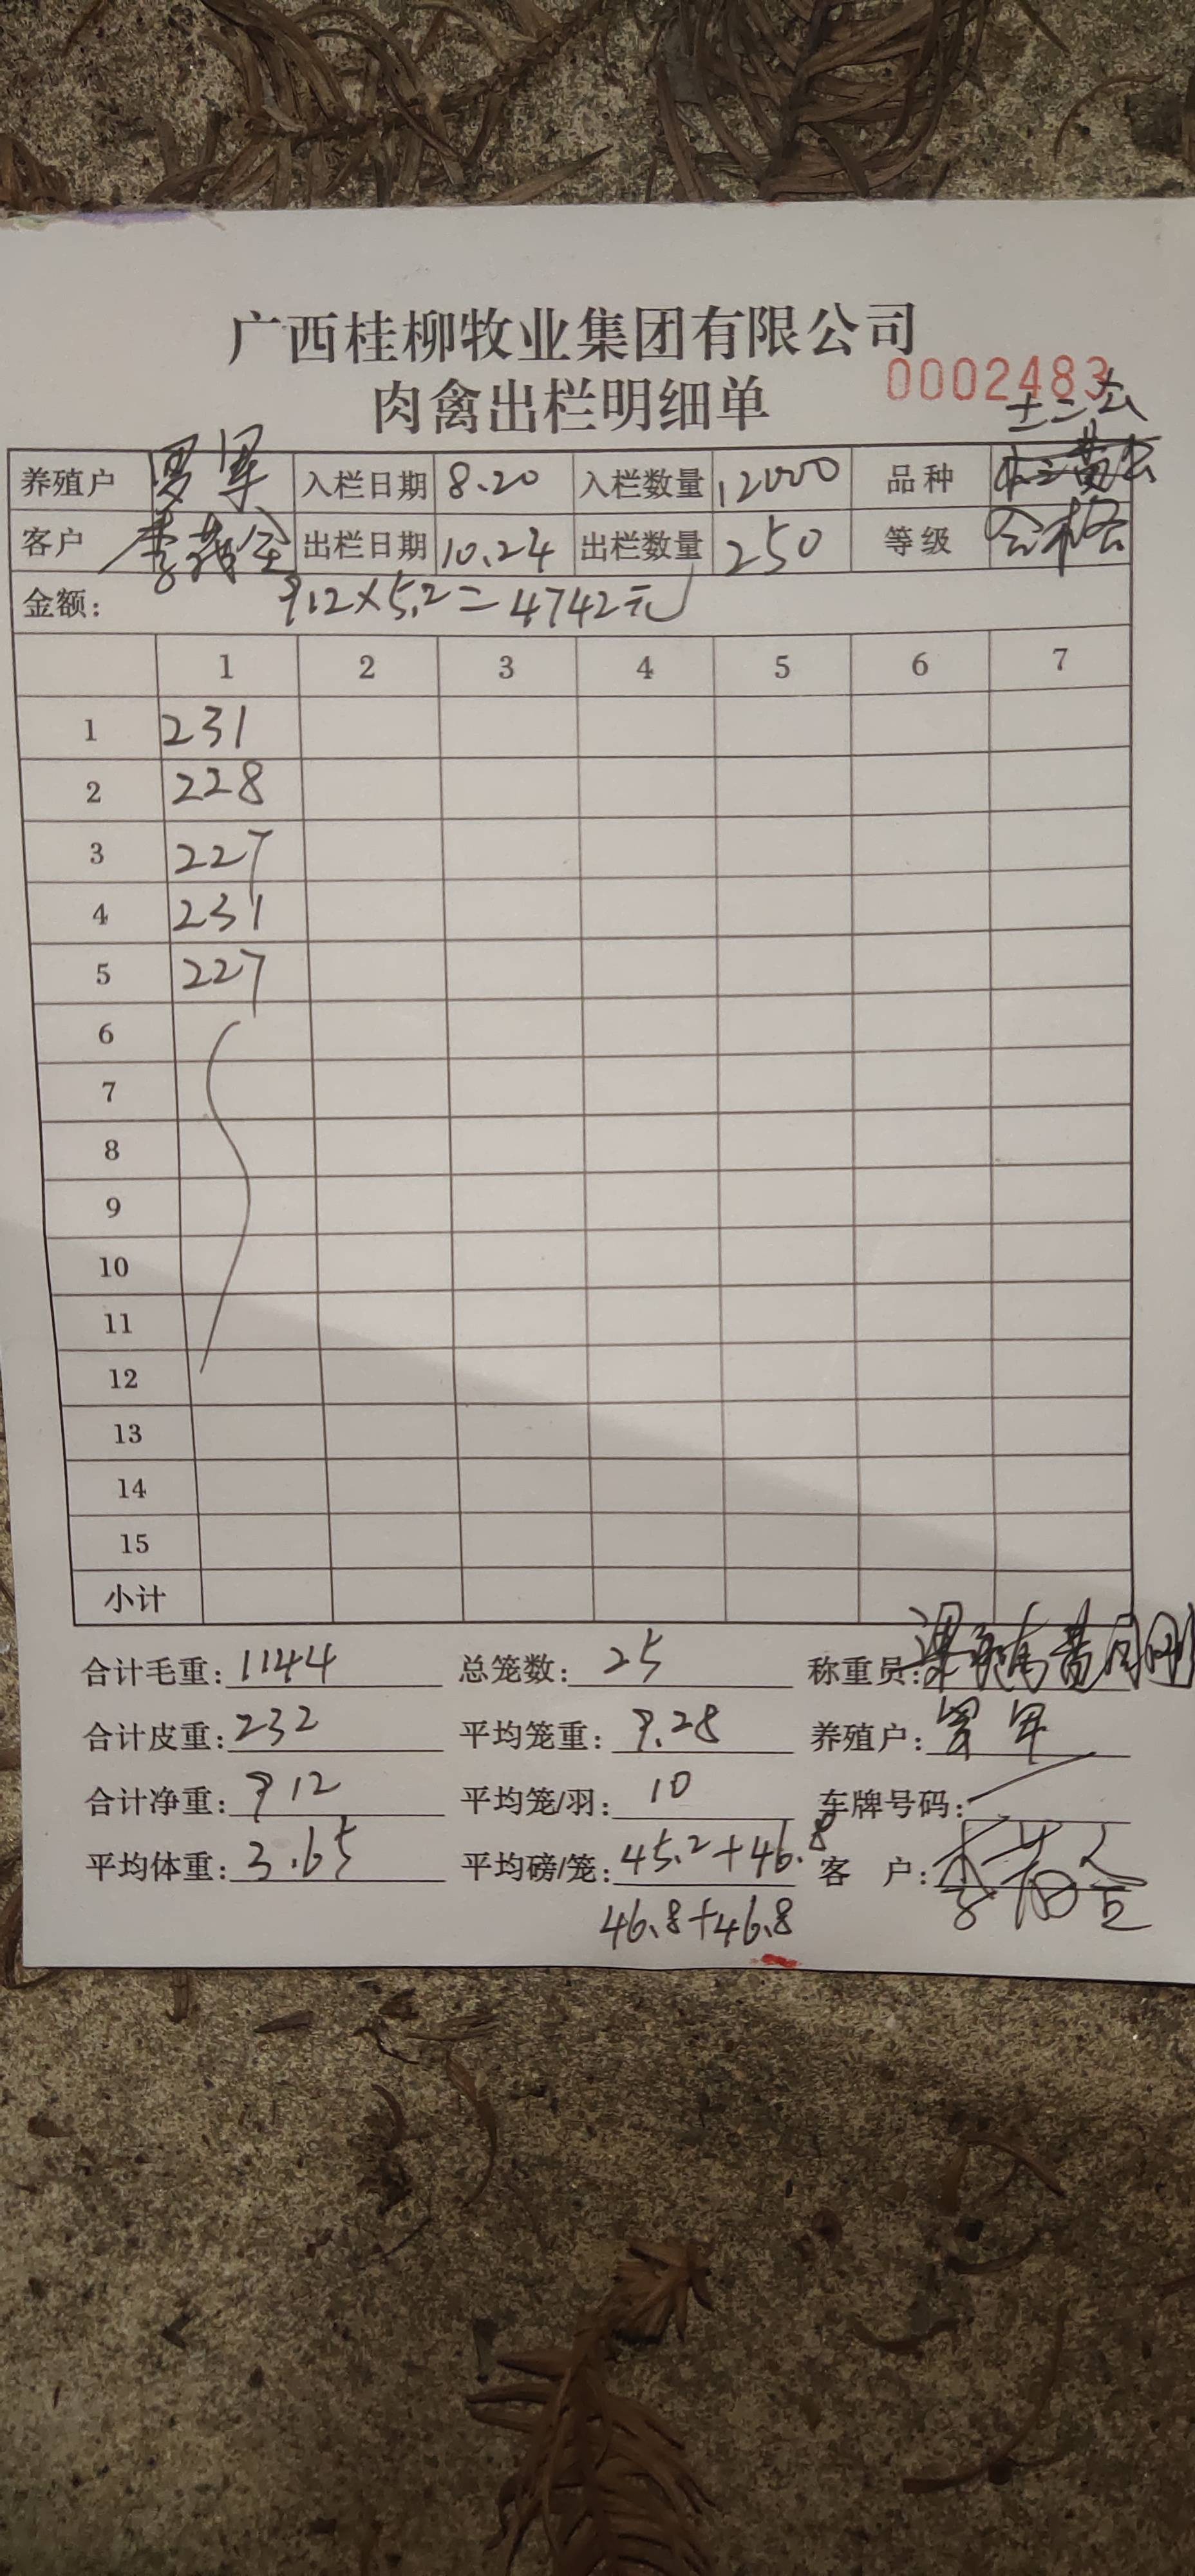 广西桂柳牧业集团有限公司
肉禽出栏明细单 0002483
土二公
养殖户 罗军 入栏日期 8.20 入栏数量 12000 品种
客户 出栏日期 10.24 出栏数量 250 等级 合格
金额: 912×5.2=4742元
1 2 3 4 5 6 7
1 231
2 228
3 227
4 231
5 227
6
7
8
9
10
11
12
13
14
15
小计
合计毛重: 1144 总笼数: 25 称重员:
合计皮重: 232 平均笼重: 9.28 养殖户: 罗军
合计净重: 912 平均笼/羽: 10 车牌号码:
平均体重: 3.65 平均磅/笼: 45.2+46.8 客 户:
46.8+46.8